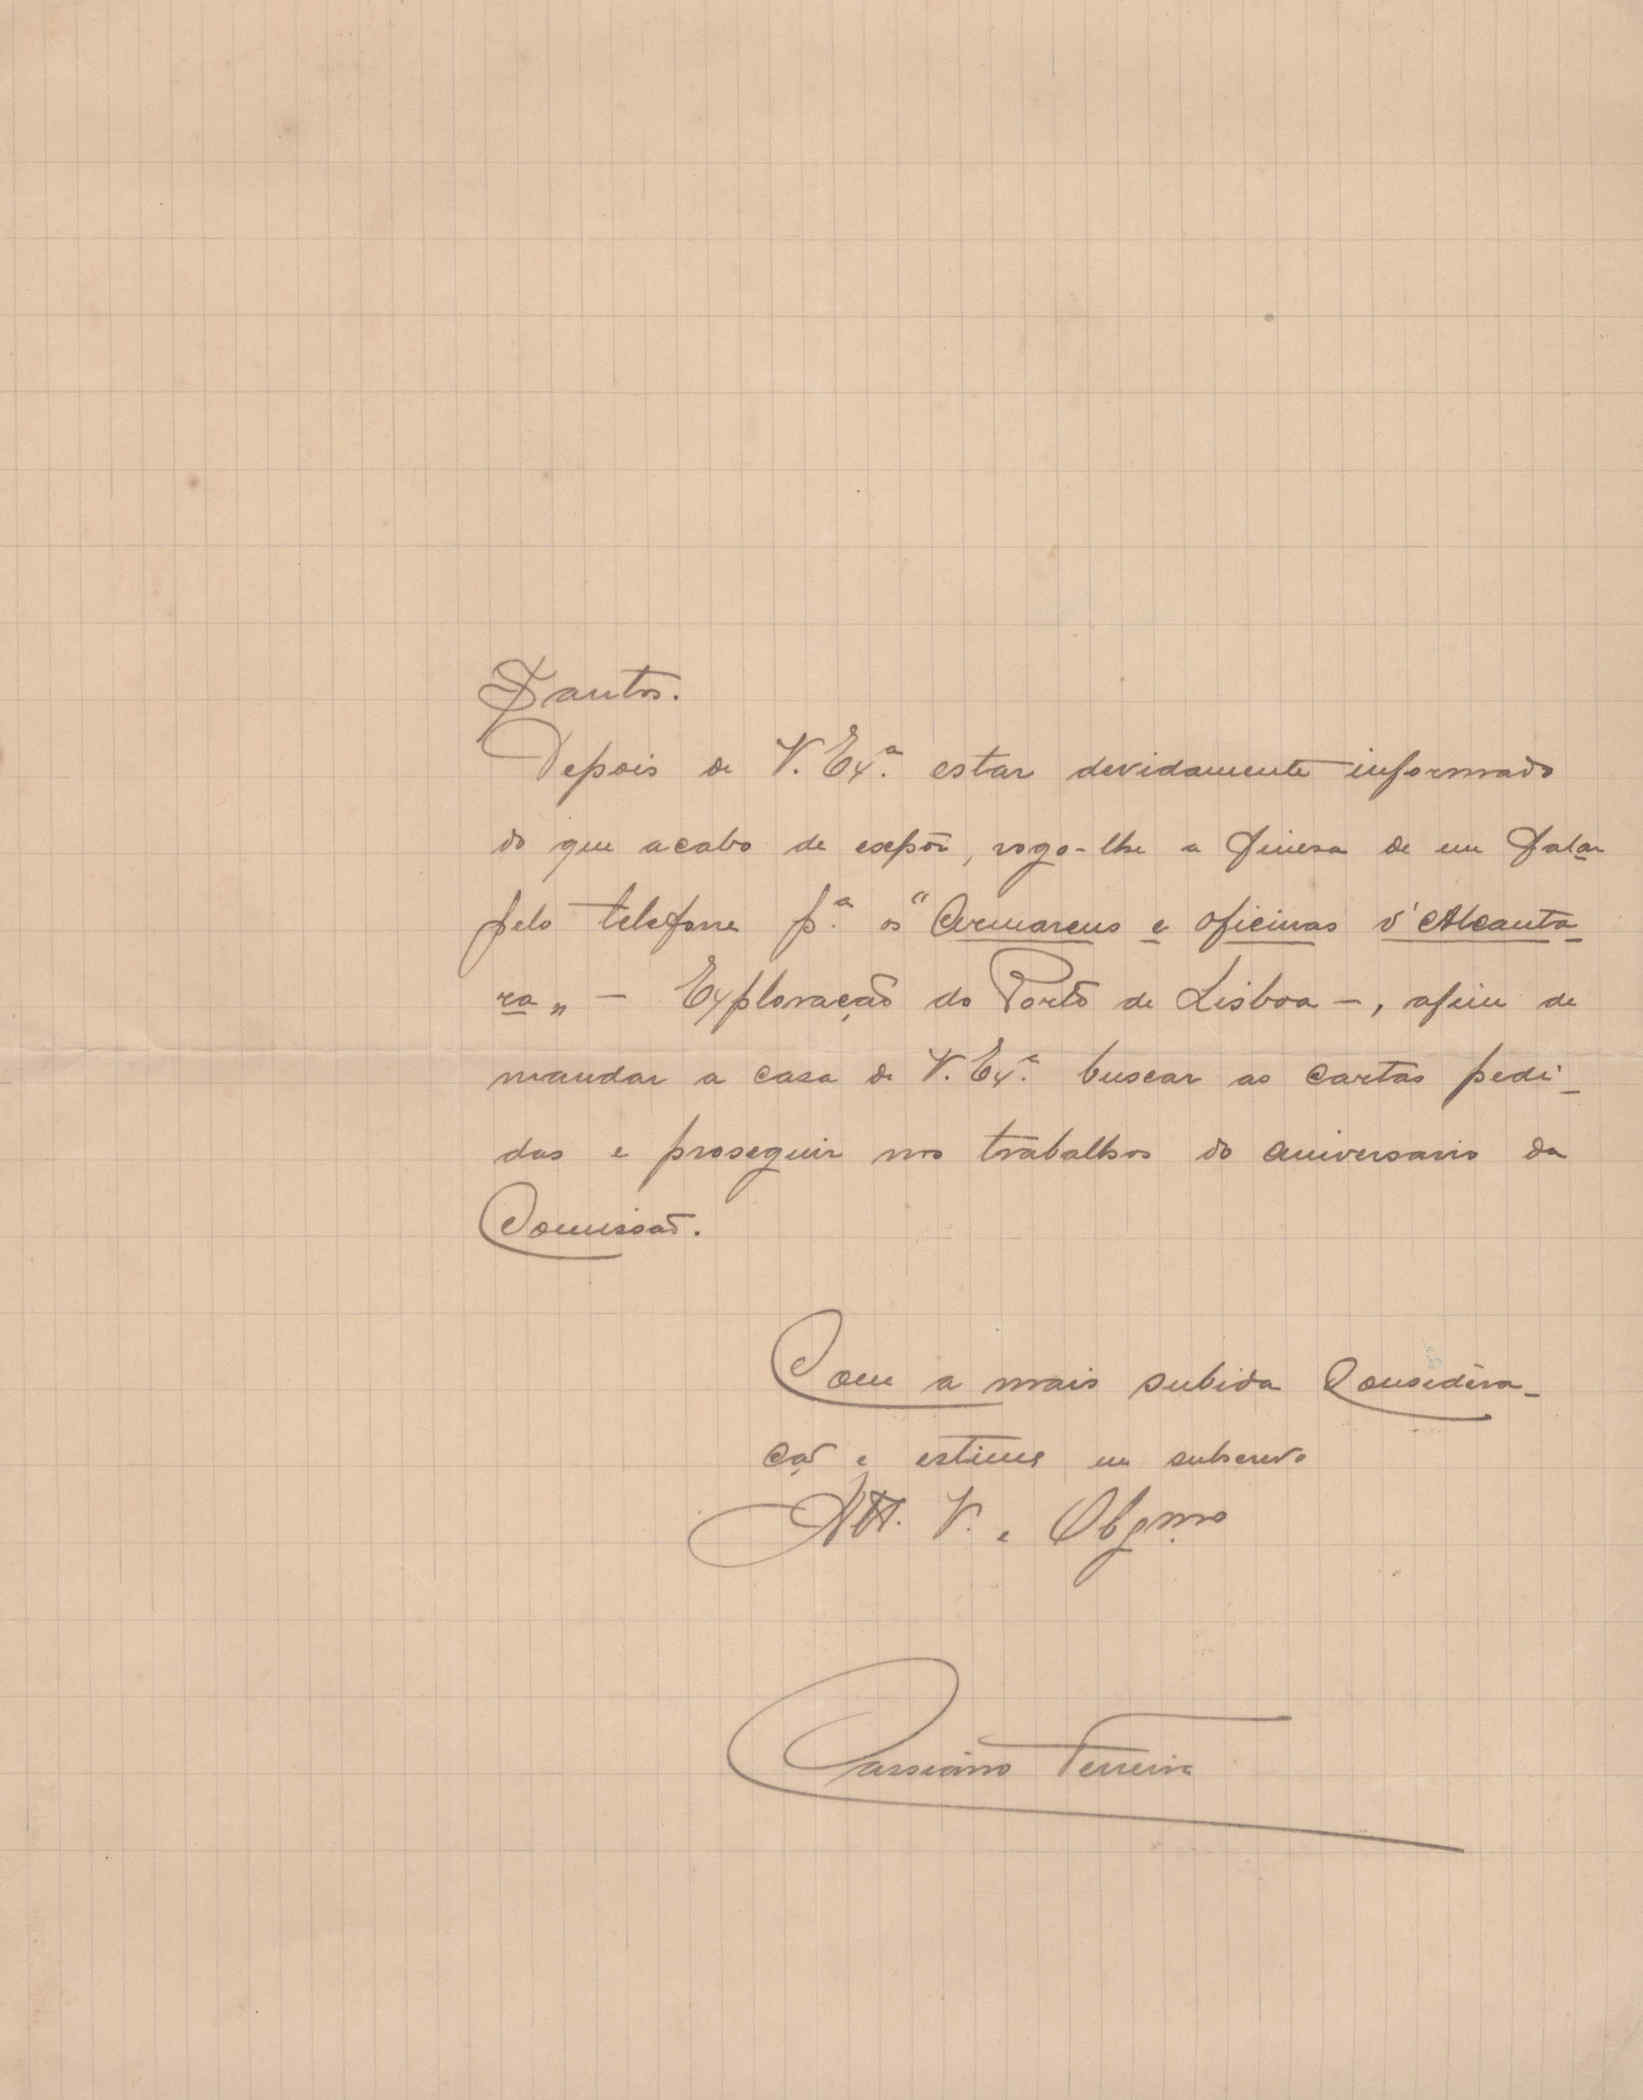 Santos.
Depois de V. Ex.ª estar devidamente informado
do que acabo de expôr, rogo-lhe a finesa de me falar
pelo telefone p.ª os "Armazens e oficinas d'Alcanta-
ra" — Exploração do Porto de Lisboa —, afim de
mandar a casa de V. Ex.ª buscar as cartas pedi-
das e proseguir nos trabalhos do aniversario da
Comissão.
Com a mais subida Considera-
ção e estima me subscrevo
Att. V. e Obg.mo
Cassiano Ferreira